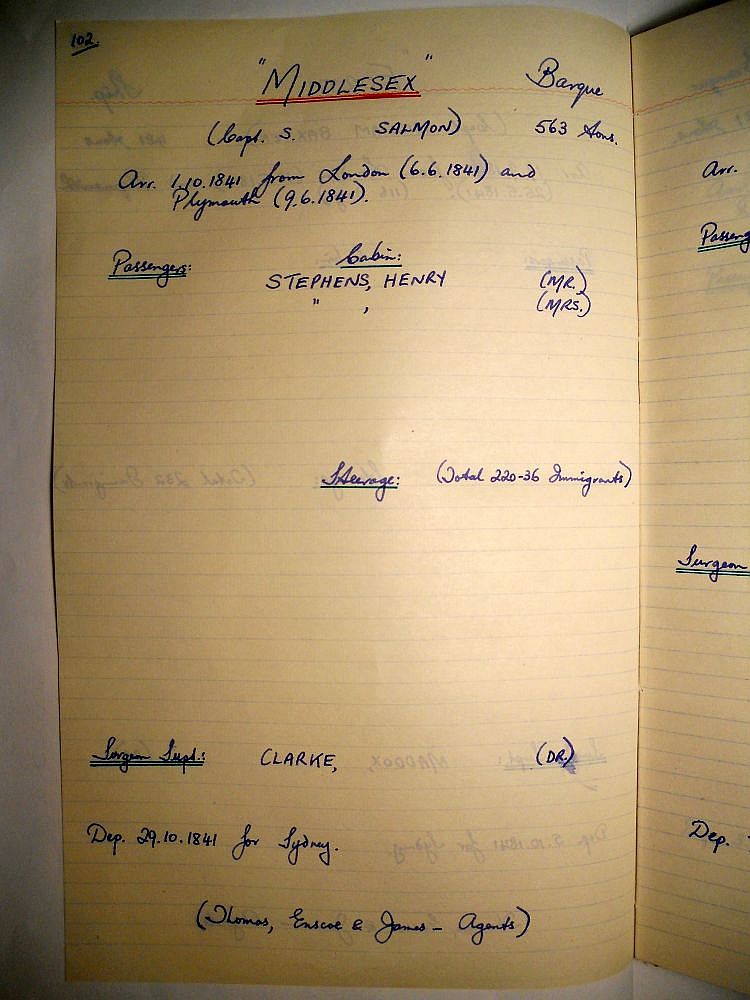 102.
"MIDDLESEX" Barque
(Capt. S. SALMON) 563 tons.
Arr. 1.10.1841 from London (6.6.1841) and
Plymouth (9.6.1841).
Passengers: Cabin:
STEPHENS, HENRY (MR.)
" , (MRS.)
Steerage: (Total 220-36 Immigrants)
Surgeon Supt.: CLARKE, (DR.)
Dep. 29.10.1841 for Sydney.
(Thomas, Enscoe & James - Agents)
Arr.
Passeng
Surgeon
Dep.